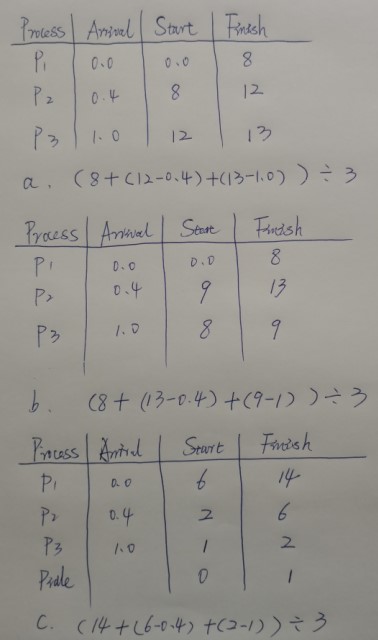 Process Arrival Start Finish
P1 0.0 0.0 8
P2 0.4 8 12
P3 1.0 12 13
a. (8+(12-0.4)+(13-1.0)) ÷ 3
Process Arrival Start Finish
P1 0.0 0.0 8
P2 0.4 9 13
P3 1.0 8 9
b. (8+(13-0.4)+(9-1)) ÷ 3
Process Arrival Start Finish
P1 0.0 6 14
P2 0.4 2 6
P3 1.0 1 2
Pidle 0 1
C. (14+(6-0.4)+(2-1)) ÷ 3